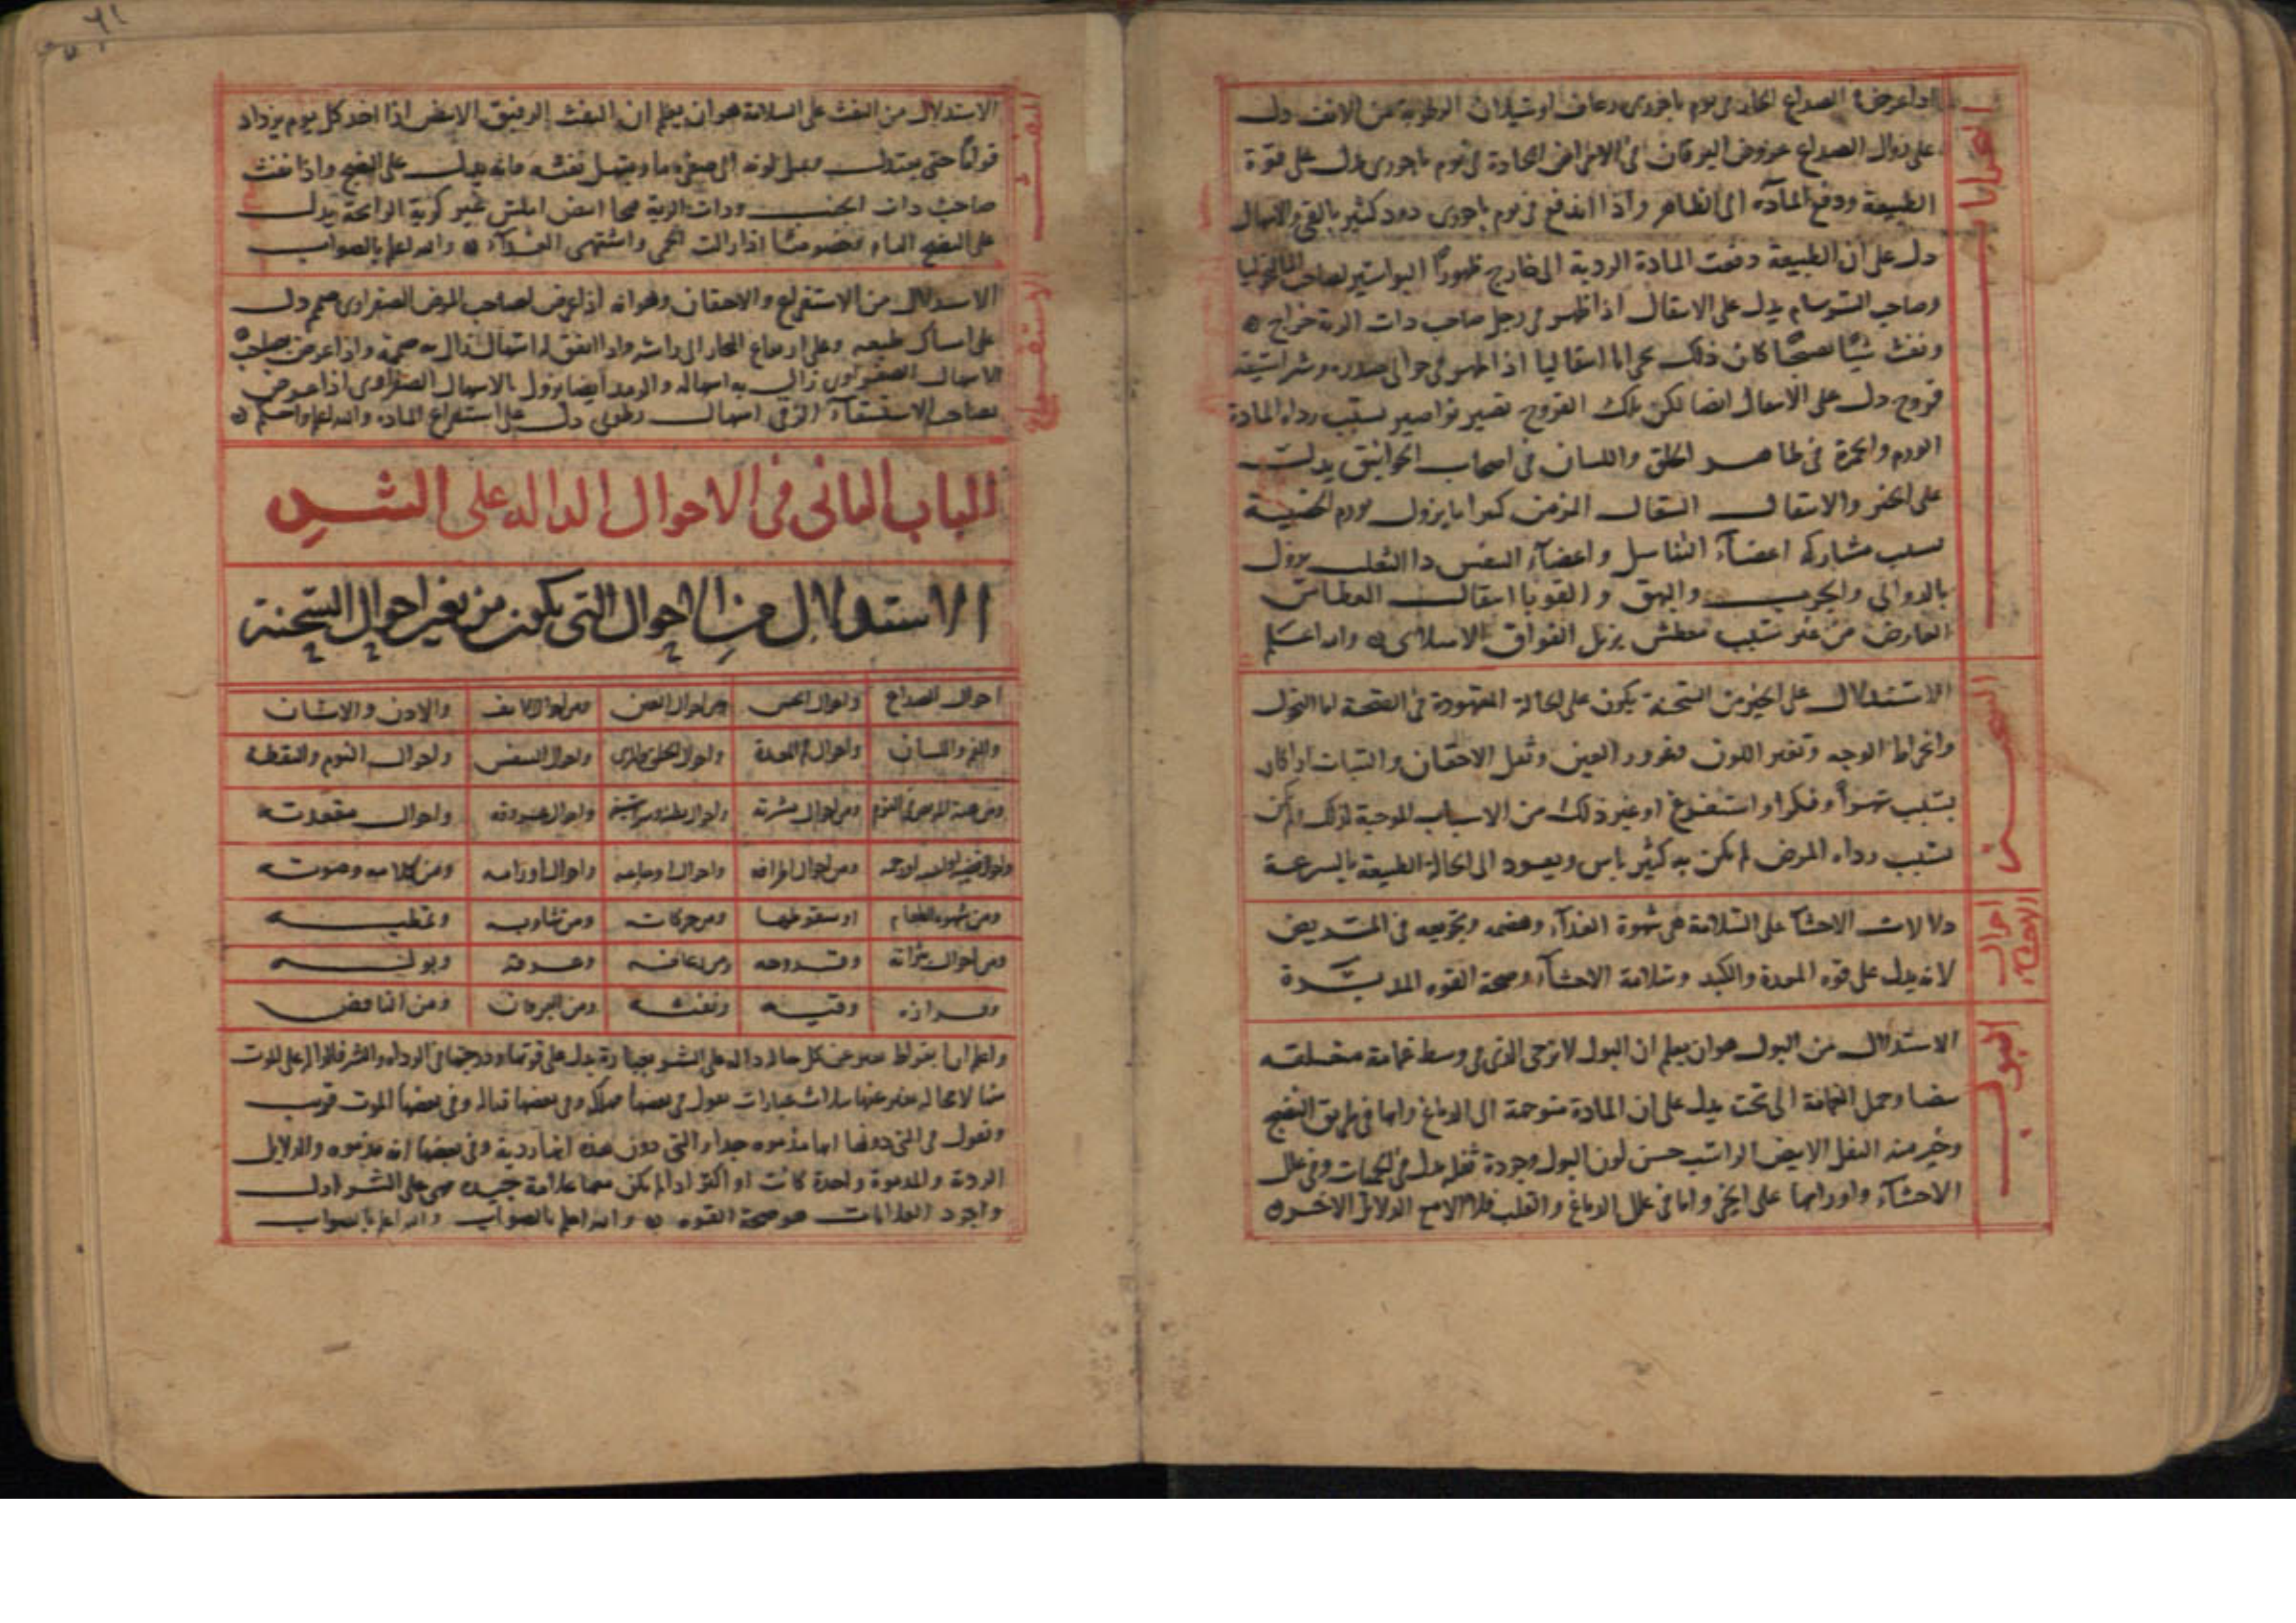 البحرانات
اذا عرض في الصداع الحاد في يوم باحوري رعاف او سيلان الرطوبة من الانف دل
على زوال الصداع عروض اليرقان في الامراض الحادة في يوم باحوري يدل على قوة
الطبيعة ودفع المادة الى الظاهر واذا اندفع في يوم باحوري دود كثير بالقي والاسهال
دل على ان الطبيعة دفعت المادة الردية الى خارج ظهور البواسير لصاحب المالنخوليا
وصاحب السرسام يدل على الانتقال اذا ظهر في رجل صاحب ذات الرية خراج
ونفث شيا نضيجا كان ذلك بحرانا انتقاليا اذا ظهر في حوالي صدره
قروح دل على الانتقال ايضا لكن تلك القروح تصير نواصير بسبب رداه المادة
الورم والحمرة في ظاهر الحلق واللسان في اصحاب الخوانيق يدل
على الخير والانتقال السعال المزمن كثيرا ما يزول بورم الخصية
بسبب مشاركة اعضآء التناسل واعضآء النفس دا الثعلب يزول
بالدوالي والجرب والبهق والقوبا انتقال العطاس
العارض من غير سبب معطش يزيل الفواق الامتلاى والله اعلم
الاستدلال على الخير من السحنة يكون على الحالة المعهودة في الصحة اما النحول
وانخراط الوجه وتغير اللون وغوور العين وثقل الاجفان والسبات اذا كان
بسبب سهر او فكر او استفراغ او غير ذلك من الاسباب الموجبة لذلك لم يكن
بسبب رداه المرض لم يكن به كثير باس ويعود الى الحالة الطبيعة بالسرعة
احوال الاحشاء
دلالات الاحشا على السلامة هي شهوة الغذآء وهضمه وتجويعه في المريض
لانه يدل على قوه المعدة والكبد وسلامة الاحشآء وصحة القوه المدبرة
البول
الاستدلال من البول هو ان يعلم ان البول الذي في وسط غمامة معلقه
بيضا وحمل الغمامة الى تحت يدل على ان المادة متوجهة الى الدماغ وانها في طريق النضج
وخير منه الثفل الابيض الراسب حسن لون البول وجودة ثفله يدل في الحميات وفي علل
الاحشآء واورامها على الخير واما في علل الدماغ والقلب فلا الا مع الدلائل الاخر
النفث
الاستدلال من النفث على السلامة هو ان يعلم ان النفث الرقيق الابيض اذا اخذ كل يوم يزداد
قواما حتى يعتدل ويميل لونه الى صفرة ما ويسهل نفثه فانه يدل على النضج واذا نفث
صاحب ذات الجنب وذات الرية مخا ابيض املس غير كرية الرائحة يدل
على النضج التام وخصوصا اذا زالت الحمى واشتهى الغذآء والله اعلم بالصواب
الاستفراغ
الاستدلال من الاستفراغ والاحتقان وهو انه اذا عرض لصاحب المرض الصفراوى صمم دل
على امساك طبيعته وعلى ارتفاع البخار الى راسه واذا اتفق له اسهال زال به صممه واذا عرض صاحب
الاسهال الصفراوى زال به اسهاله والرمد ايضا يزول بالاسهال الصفراوى اذا عرض
لصاحب الاستسقآء الزقى اسهال رطوبى دل على استفراغ المادة والله اعلم واحكم
الباب الثانى فى الاحوال الداله على الشر
الاستدلال من الاحوال التى يكون من تغير احوال السحنة
احوال الصداع واحوال الحس ومن احوال العين ومن احوال الانف والاذن والاسنان
والفم واللسان واحوال المعدة واحوال الحلق والمرى واحوال النفس واحوال النوم واليقظة
ومن احوال بشرته واحوال عروقه واحوال مقعدته
ومن احوال اطرافه واحوال اوجاعه واحوال اورامه ومن كلامه وصوته
ومن شهوه الطعام او سقوطها ومن حركاته ومن تثاوبه وتمطيه
ومن احوال بثراته وقروحه ومن رعافه وعرقه وبوله
وبرازه وقيه ونفثه ومن البحران ومن النافض
واعلم ان بقراط عبر عن كل حاله داله على الشر بعبارة يدل على قوتها ودرجتها في الرداه والشر فالدال على الموت
منها لا محاله عبر عنها بثلاث عبارات يقول في بعضها مهلكه وفي بعضها قتاله وفي بعضها الموت قريب
ويقول في التى دونها انها مذمومه جدا والتى دون هذه انها ردية وفي بعضها انه مذمومه والدلايل
الردة والمذمومة واحدة كانت او اكثر اذا لم يكن معها علامة جيده فهى على الشر ادل
واجود العلامات هو صحة القوه والله اعلم بالصواب والله اعلم بالصواب